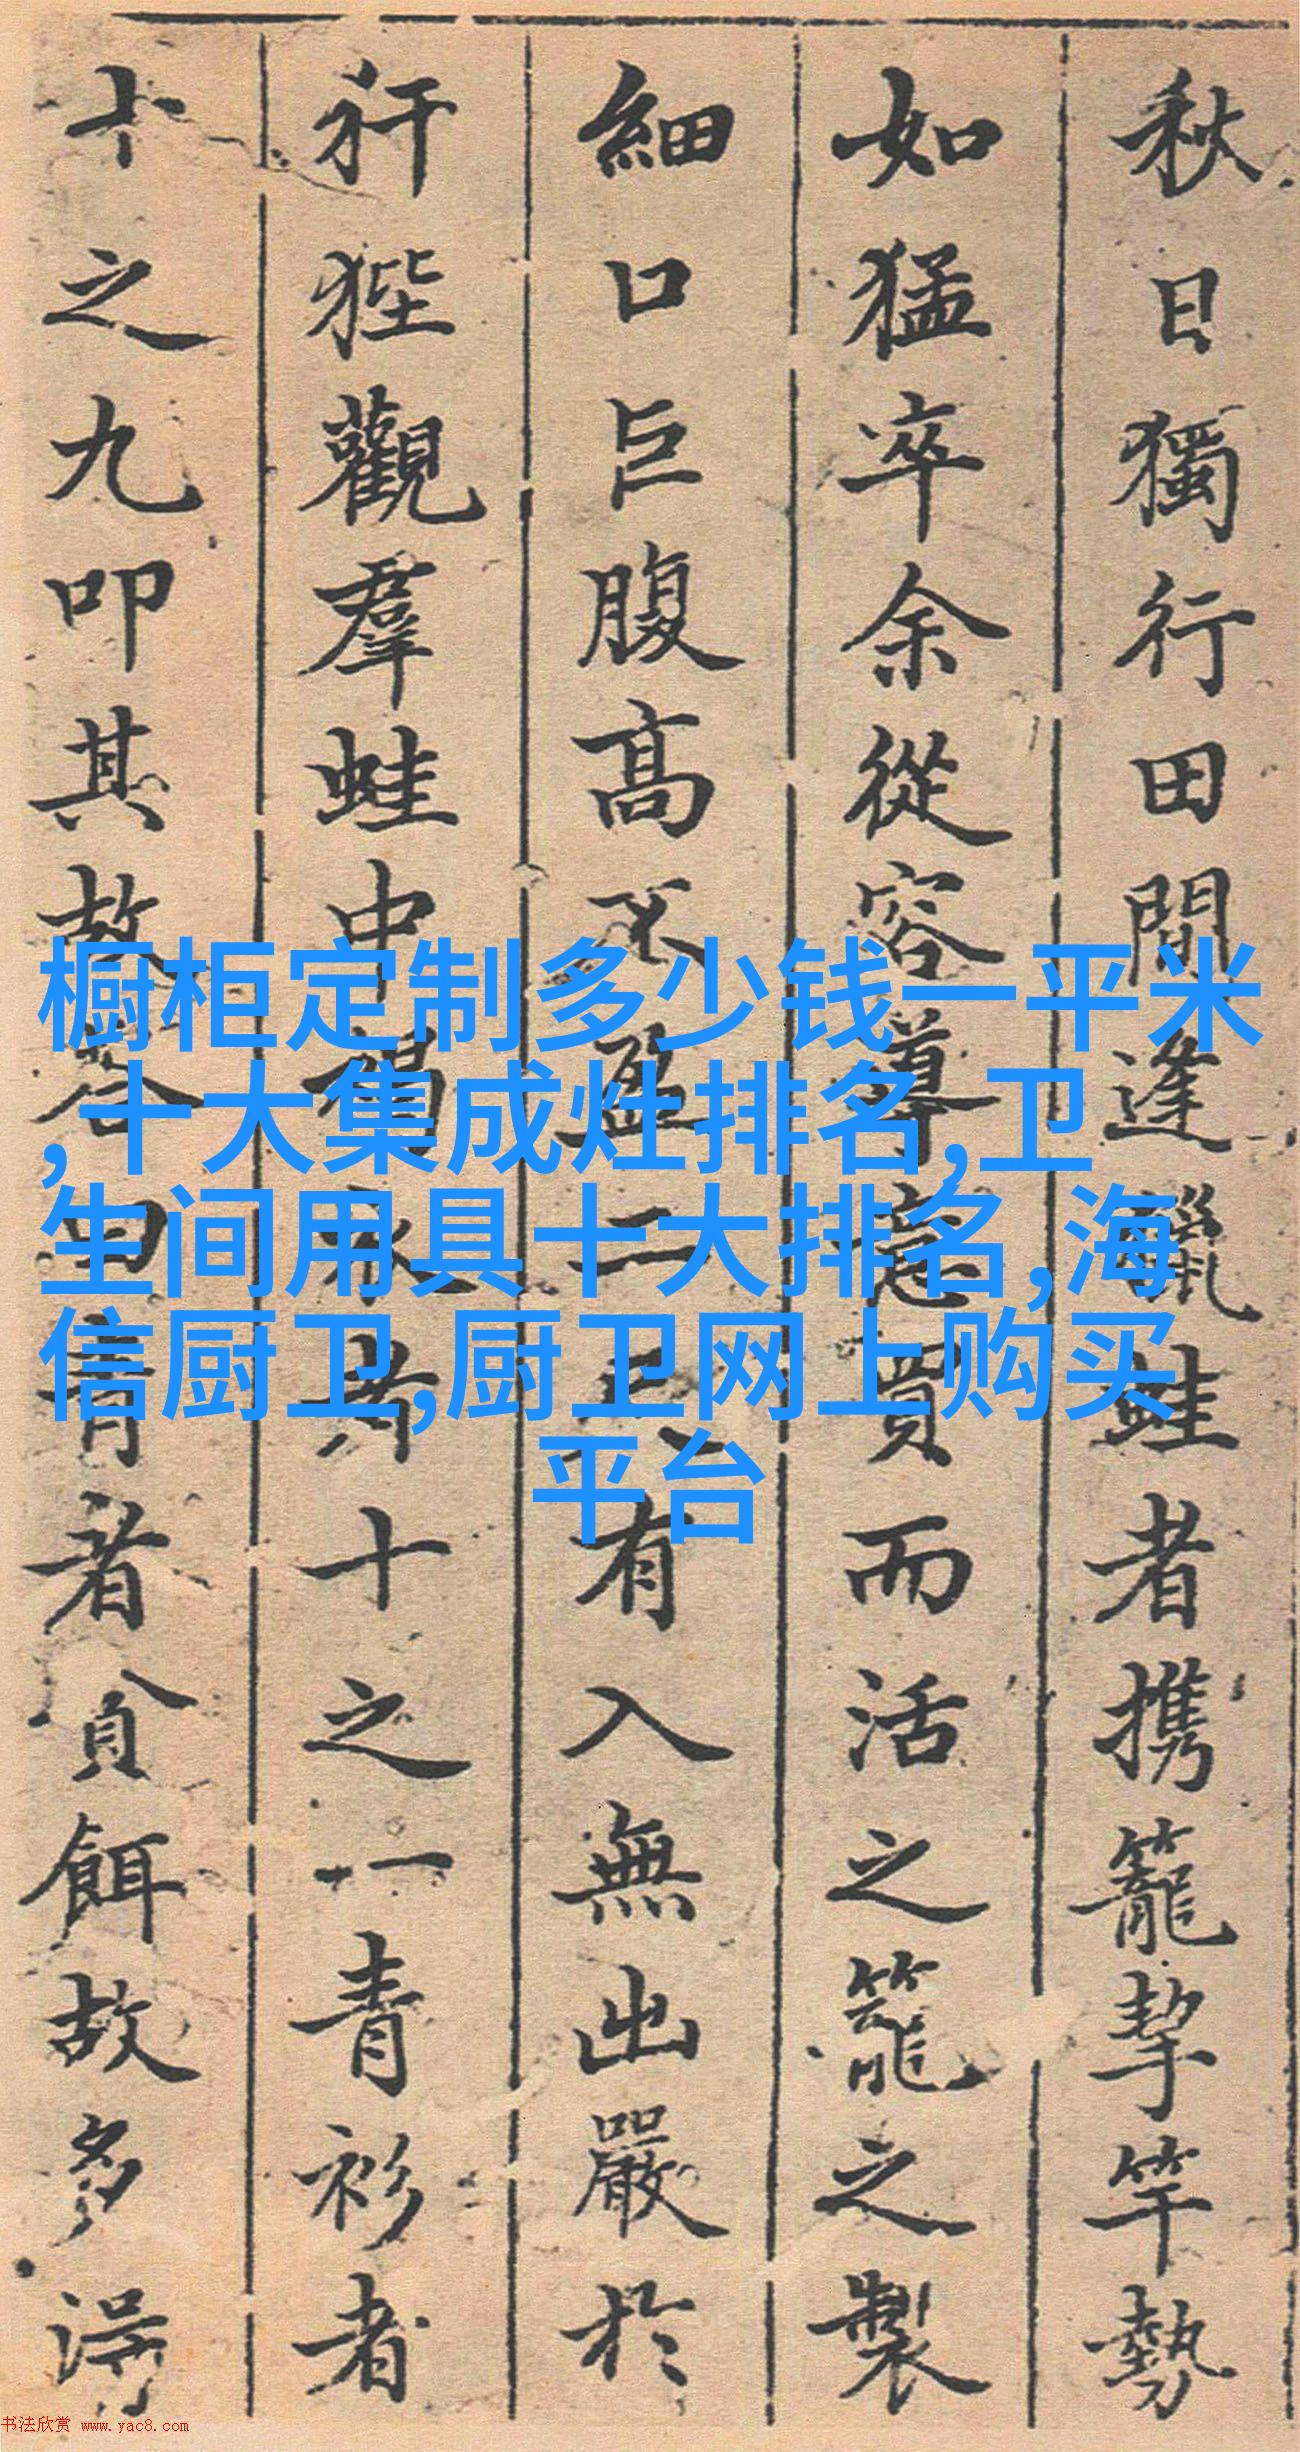 秋日獨行田間逢蛙者携籠挈竿勢
如猛卒余從容尊意買而活之籠之製
細口巨腹高不盈二有入無出嚴於
犴狴觀羣蛙中褐衣者十之一青衫者
十之九叩其故答曰青者貪餌故多得
橱柜定制多少钱一平米
,十大集成灶排名,卫
生间用具十大排名,海
信厨卫,厨卫网上购买
平台
书法欣赏 www.yac8.com